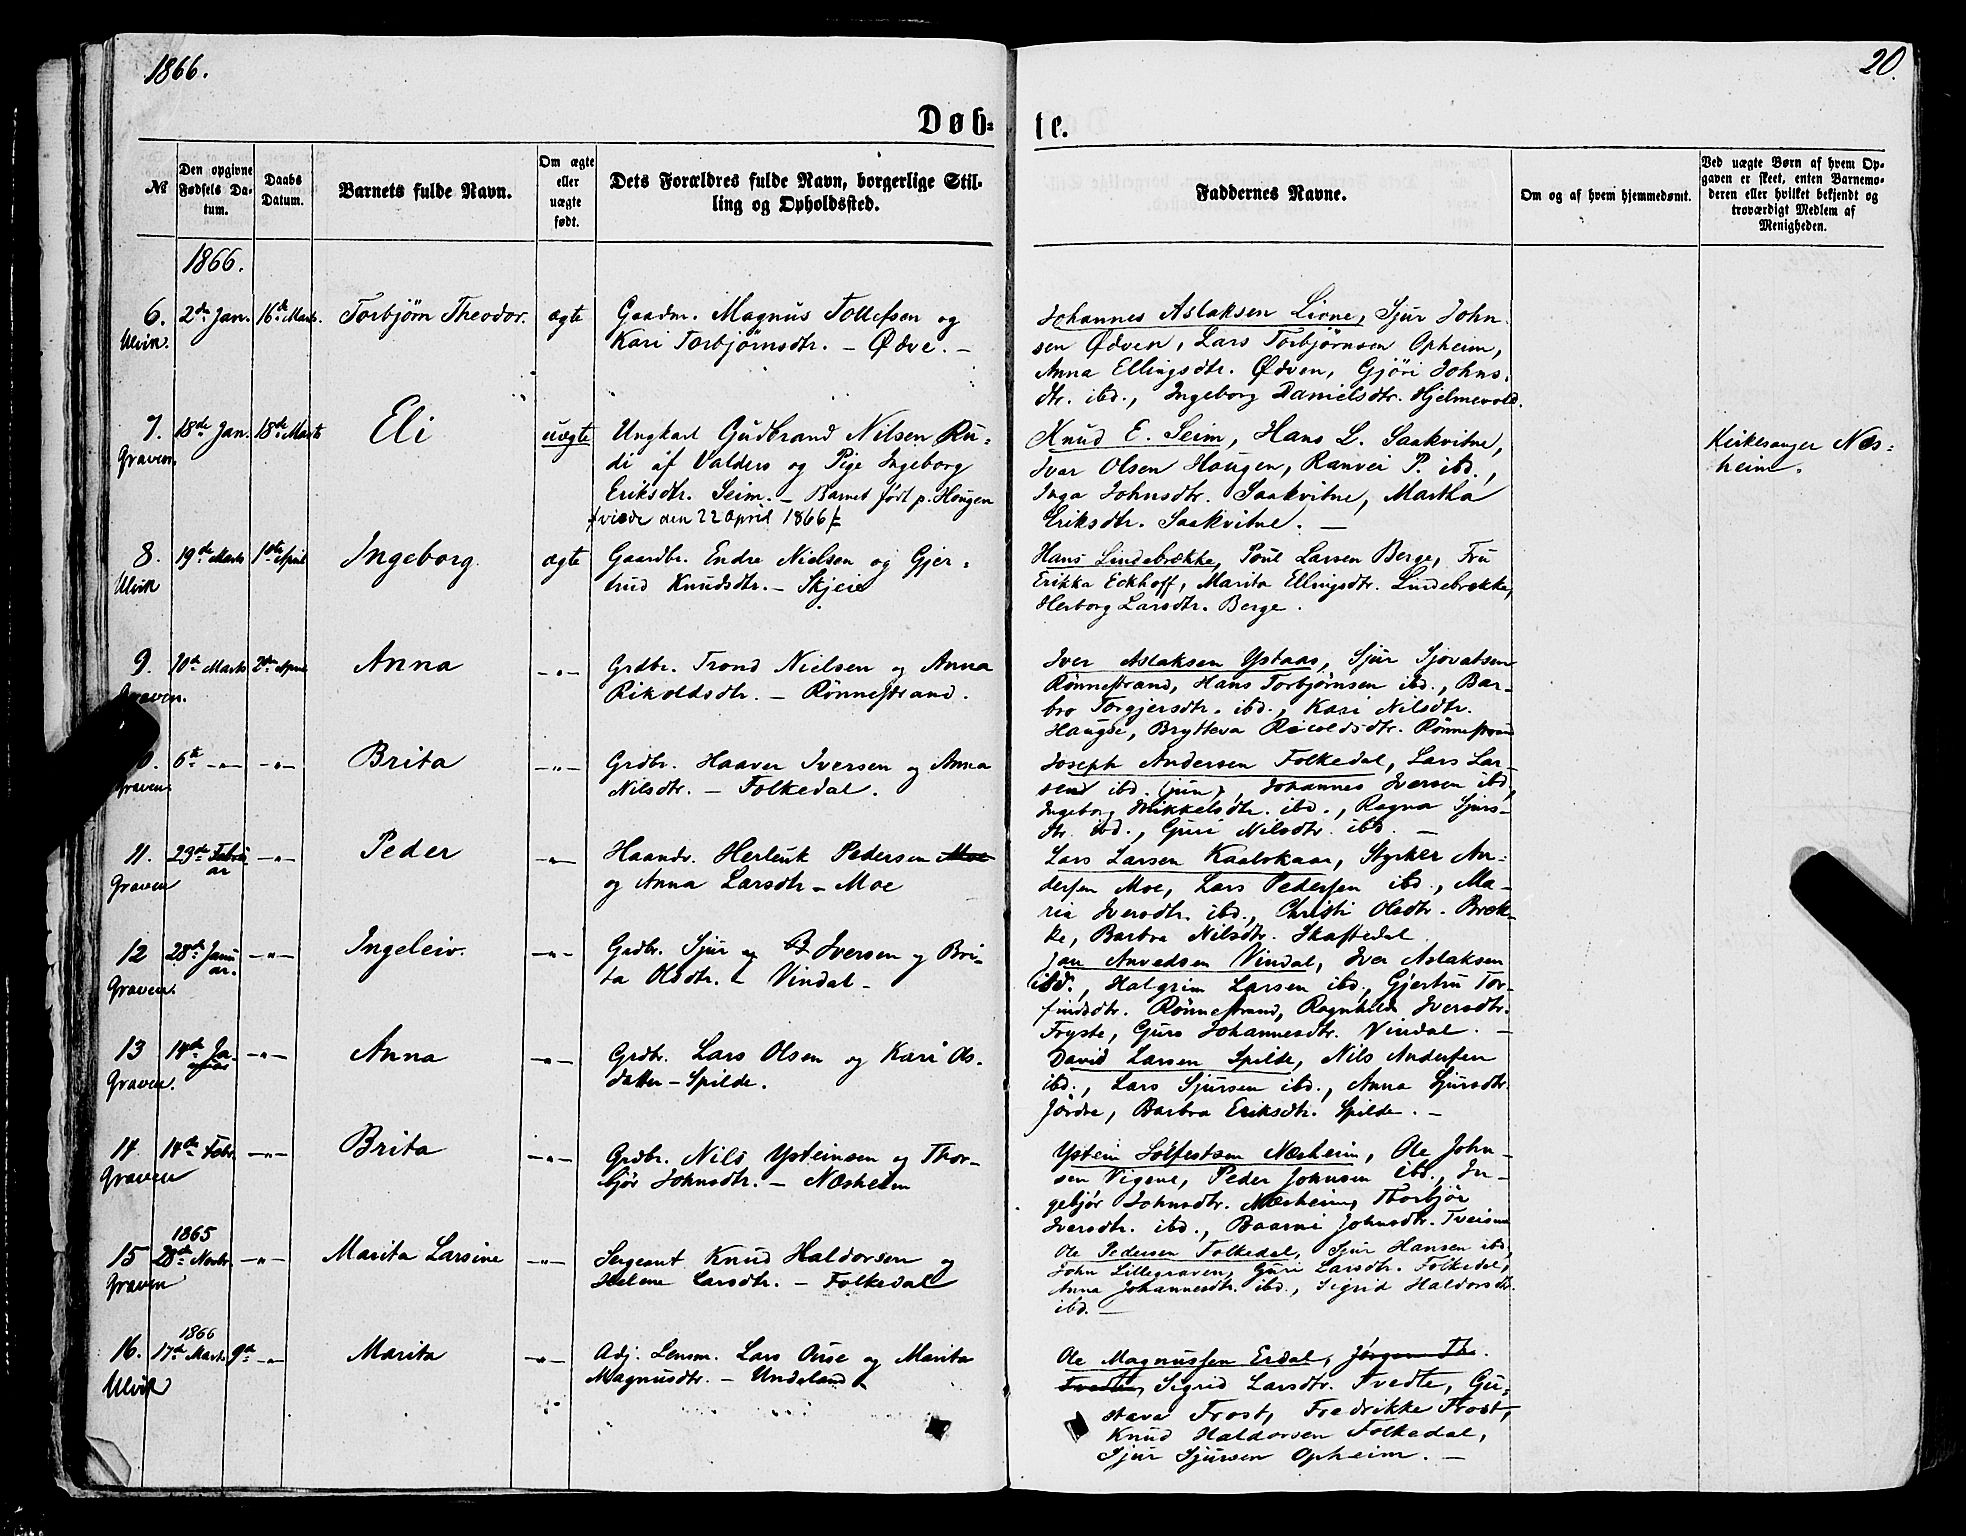 1866.
20.
Døb=
te.
№
Den opgivne Fødsels Da-tum.
Daabs Datum.
Barnets fulde Navn.
Om ægte eller uægte født.
Dets Forældres fulde Navn, borgerlige Stil-
ling og Opholdssted.
Faddernes Navne.
Om og af hvem hjemmedøbt.
Ved uægte Børn af hvem Op-
gaven er skeet, enten Barnemo-
deren eller hvilket bekjendt og
troværdigt Medlem af
Menigheden.
1866.
6. 2de Jan. 16de Marts. Torbjörn Theodor. ægte Gaadm. Magnus Tollefsen og
Ulvik. Kari Torbjörnsdtr. – Ødve. –
Johannes Aslaksen Lione, Sjur John
sen Ødven, Lars Torbjörnsen Opheim,
Anna Ellingsdtr. Ødven, Gjöri Johns.
dtr. ibd., Ingeborg Danielsdtr. Hjelmevold.
7. 18de Jan. 18de Marts Eli uægte Ungkarl Gudbrand Nilsen Ru=
Graven. di af Valders og Pige Ingeborg
Eriksdtr. Seim. – Barnet født p. Hougen
viede den 22 April 1866
Knud E. Seim, Hans L. Saakvitne,
Ivar Olsen Haugen, Ranvei P. ibd.,
Inga Johnsdtr. Saakvitne, Martha
Eriksdtr. Saakvitne. –
Kirkesanger Næs=
heim.
8. 19de Marts 1ste April Ingeborg. ægte Gaardbr. Endre Nielsen og Gjer=
Ulvik trud Knudsdtr. – Skjeie
Hans Lindebrække, Poul Larsen Berge, Fru
Erikka Eckhoff, Marita Ellingsdtr. Lindebrække,
Herborg Larsdtr. Berge.
9. 10de Marts 2den April Anna –„– Grdbr. Trond Nielsen og Anna
Graven. Rikoldsdtr. – Rönnestrand.
Iver Aslaksen Ystaas, Sjur Sjovatsen
Rönnestrand, Hans Torbjörnsen ibd., Bar-
bro Torgjersdtr. ibd., Kari Nilsdtr.
Haugse, Brytteva Ricoldsdtr. Rönnestrand
6te –„– –„– Brita –„– Grdbr. Haaver Iversen og Anna
Graven. Nilsdtr. – Folkedal.
Joseph Andersen Folkedal, Lars Lar-
sen ibd. (jun), Johannes Iversen ibd,
Ingeborg Mikkelsdtr. ibd., Ragna Sjurs-
dtr. ibd., Guri Nilsdtr. ibd. –
11. 23de Febru –„– Peder –„– Haandv. Herleuk Pedersen Moe
ar
Graven og Anna Larsdtr – Moe
Lars Larsen Kaalskaar, Styrker An=
dersen Moe, Lars Pedersen ibd., Ma-
ria Iversdtr. ibd., Christi Olsdtr. Bræk-
ke, Barbra Nilsdtr. Skaftedal
12 28de Janu –„– Ingeleiv. –„– Grdbr. Sjur Iversen og Bri-
ar.
Graven. ta Olsdtr. – Vindal –
Jan Anvedsen Vindal, Iver Aslaksen
ibd., Halgrim Larsen ibd., Gjertru Tor-
findsdtr. Rönnestrand, Ragnhild Iversdtr.
Tryste, Guro Johannesdtr. Vindal. –
13 14de Ja- –„– Anna –„– Grdbr. Lars Olsen og Kari Ols-
nuar
Graven. datter – Spilde.
David Larsen Spilde, Nils Andersen
ibd., Lars Sjursen ibd., Anna Sjursdtr.
Jördre, Barbra Eriksdtr. Spilde. –
14. 14de Febr. –„– Brita –„– Grdbr. Nils Ysteinsen og Thor-
Graven björ Johnsdtr. – Næsheim
Ystein Solfestsen Næsheim, Ole John-
sen Vigene, Peder Johnsen ibd, In-
gebjör Johnsdtr. Næsheim, Thorbjör
Iversdtr. ibd., Baarni Johnsdtr. Tveisme
1865
15 28de Novbr. –„– Marita Larsine –„– Sergeant Knud Haldorsen og
Graven Helene Larsdtr. – Folkedal
Ole Pedersen Folkedal, Sjur Hansen ibd,
John Lillegraven, Guri Larsdtr. Folkedal,
Anna Johannesdtr. ibd., Sigrid Haldorsdtr.
ibd. –
1866
16. 17de Marts 9de –„– Marita –„– Adj. Lensm. Lars Oure og Marita
Ulvik Magnusdtr. – Undeland
Ole Magnussen Erdal, Jörgen Th.
Tvedte, Sigrid Larsdtr. Tvedte, Gu-
stava Frost, Fredrikke Frost,
Knud Haldorsen Folkedal,
Sjur Sjursen Opheim. –